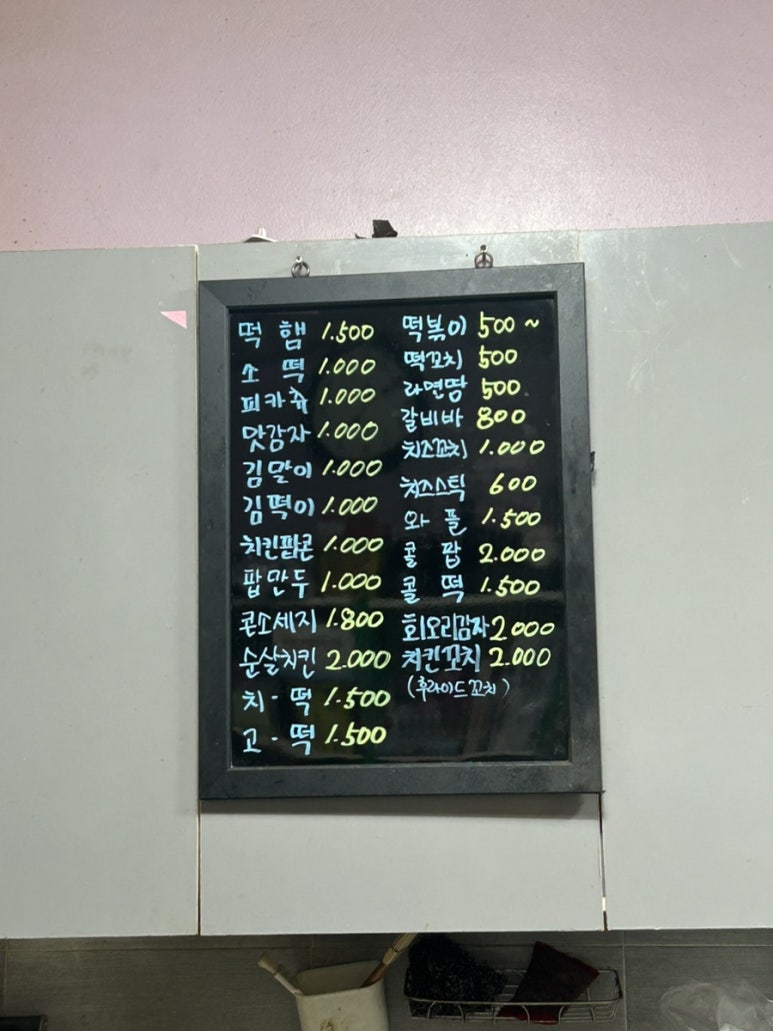 떡 햄 1.500
소 떡 1.000
피카츄 1.000
맛감자 1.000
김말이 1.000
김떡이 1.000
치킨팝콘 1.000
팝만두 1.000
콘소세지 1.800
순살치킨 2.000
치·떡 1.500
고·떡 1.500
떡볶이 500 ~
떡꼬치 500
라면땅 500
갈비바 800
치즈꼬치 1.000
치즈스틱 600
와 플 1.500
콜 팝 2.000
콜 떡 1.500
회오리감자 2000
치킨꼬치 2.000
(후라이드꼬치)